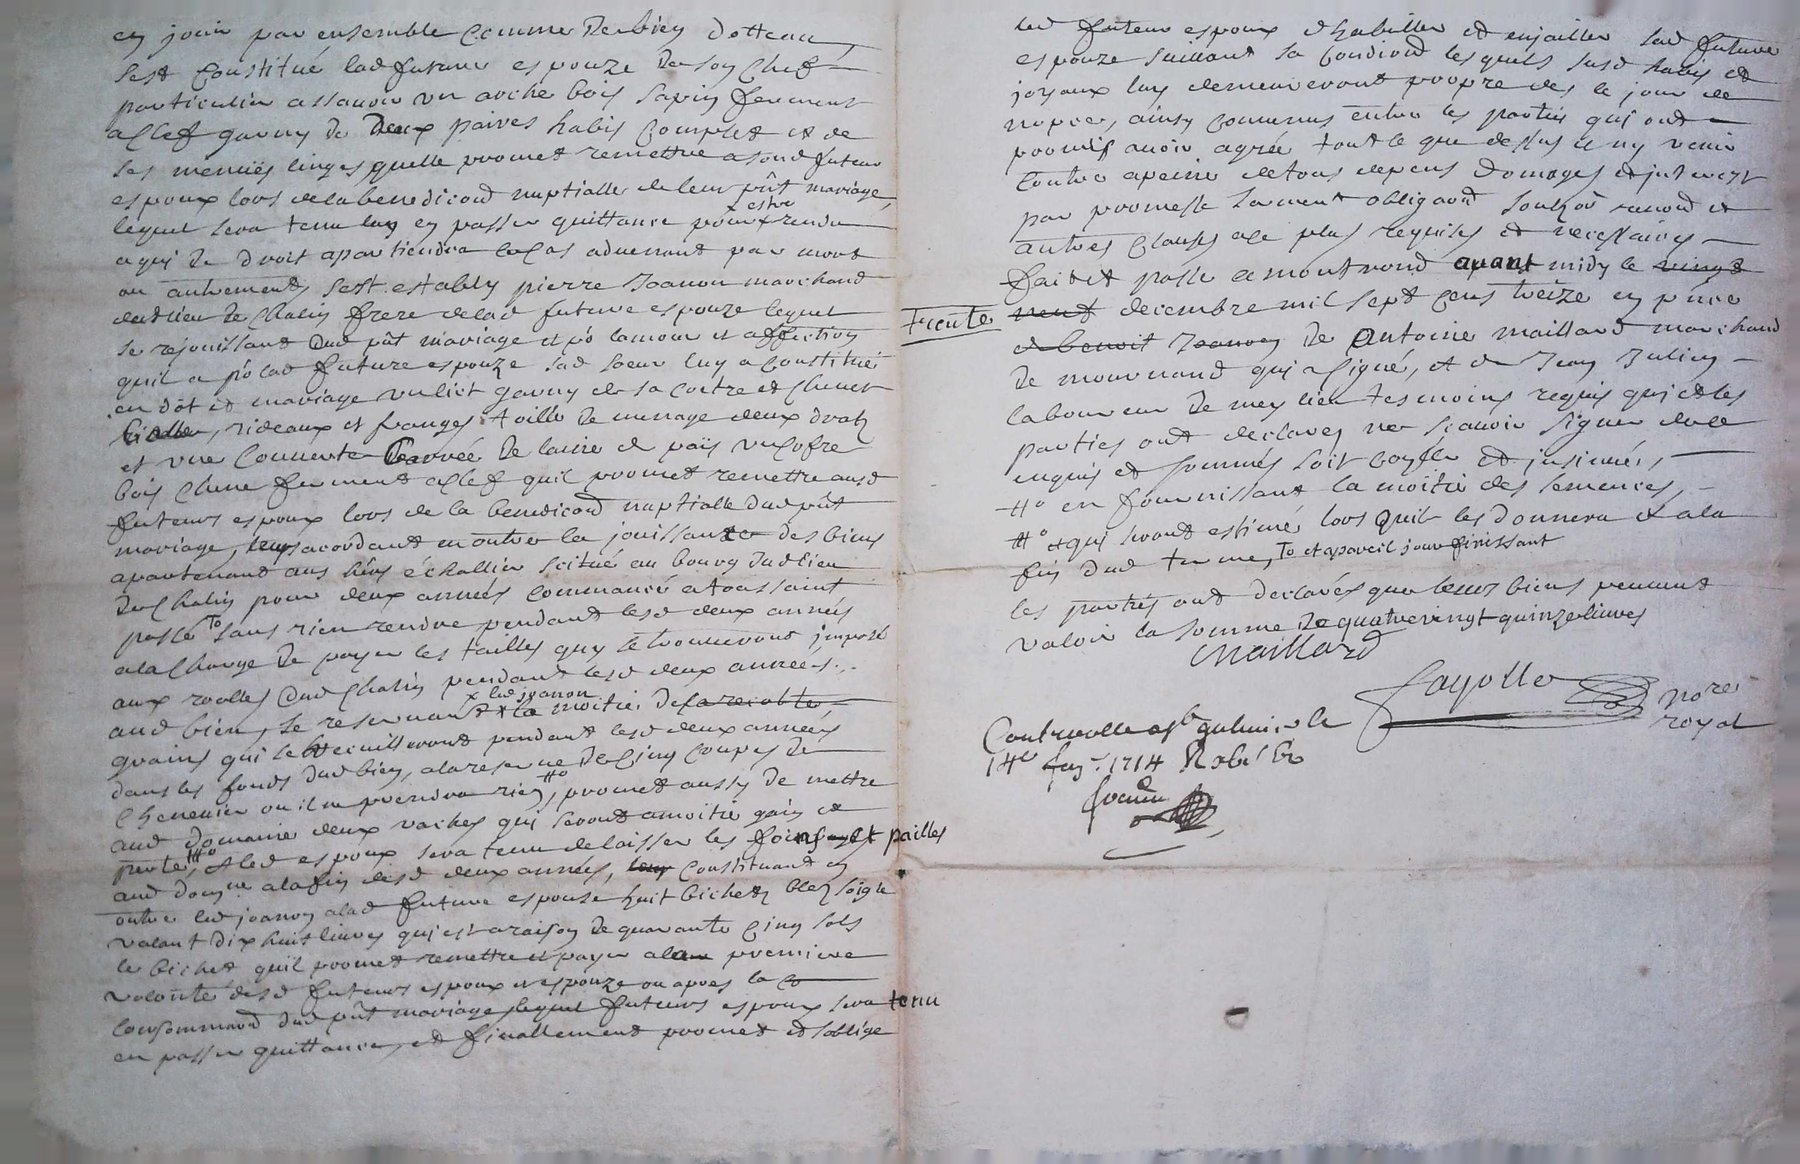 en jouir par ensemble comme de bien dottaux,
sest constitué lad future espouze de son chef
particulier assauoir un arche bois sapin fermant
a clef garny de deux paires habis complet et de
ses menües linges quelle promet remettre a sond futeur
espoux lors de la benedicōn nuptialle de leur pūt mariage,
lequel sera tenu luy en passer quittance pour x estre rendu
a qui de droit apartiendra le cas aduenant par mort
ou autrement, sest estably pierre Joanon marchand
dud lieu de Chalin frere de lad future espouze lequel
se rejouissant dud pūt mariage et pō lamour et affection
quil a pō lad future espouze sad soeur luy a constitué
en dôt et mariage un lict garny de sa coetre et cheuet
rideaux et franges toille de menage deux draps
et une couuerte de laine de païs un cofre
bois chene fermant a clef quil promet remettre ausd
futeurs espoux lors de la benedicōn nuptialle dud pūt
mariage, leur acordant en outre la jouissance des biens
apartenant aus hērs échallier scitué au bourg dud lieu
de Chalin pour deux années commancé a toussaint
passé To sans rien rendre pendant lesd deux années
a la charge de payer les tailles quy se trouueront imposé
aux rolles dud Chalin pendant lesd deux années,
aud bien, se reseruant x led joanon la moitié de la recolte
grains qui se recuilleront pendant lesd deux années
dans les fonds dud bien, a la reserue de cinq coupes de
cheneuier ou il ne prendra rien, #o promet aussy de mettre
aud domaine deux vaches qui seront amoitié gain et
perte, ##o et led espoux sera tenu de laisser les foins et pailles
aud domne a la fin desd deux années, leur constituant en
outre led joanon a lad future espouze huit bichets bled soigle
valant dix huit liures qui est a raison de quarante cinq sols
le bichet quil promet remettre et payer a la premiere
volonté desd futeurs espoux et espouze ou apres la co
consommaōn dud pūt mariage lequel futeurs espoux sera tenu
en passer quittance, et finallement promet et soblige
led futeur espoux dhabiller et enjoailler sad future
espouze suiuant sa condicōn lesquels susd habis et
joyaux luy demeureront propre des le jour de
nopces, ainsy conuenus entre les parties qui ont
promis auoir agréé tout le que dessus et ny venir
contre a peine de tous depens domages et interest
par promesse serment obligaōn souzōn renonō et
autres clauses a ce plus requises et necessaires
fait et passé a montrond auant midy le vingt
trente neuf decembre mil sept cens treize en pūce
de benoit Joanon de Antoine maillard marchand
de mournand qui a signé, et de Jean Julien
laboureur de mesme lieu tesmoins requis qui et les
parties ont declarez ne scauoir signer de ce
enquis et sommés soit conllé et insinué,
#o en fournissant la moitié des semences,
##o et qui seront estimés lors quil les donnera et a la
fin dud terme, To et a pareil jour finissant
les parties ont declarés que leurs biens peuuent
valoir la somme de quatreuingt quinze liures
Maillard
Fayolle nore royal
Controolle a st galmier le
14e jan. 1714